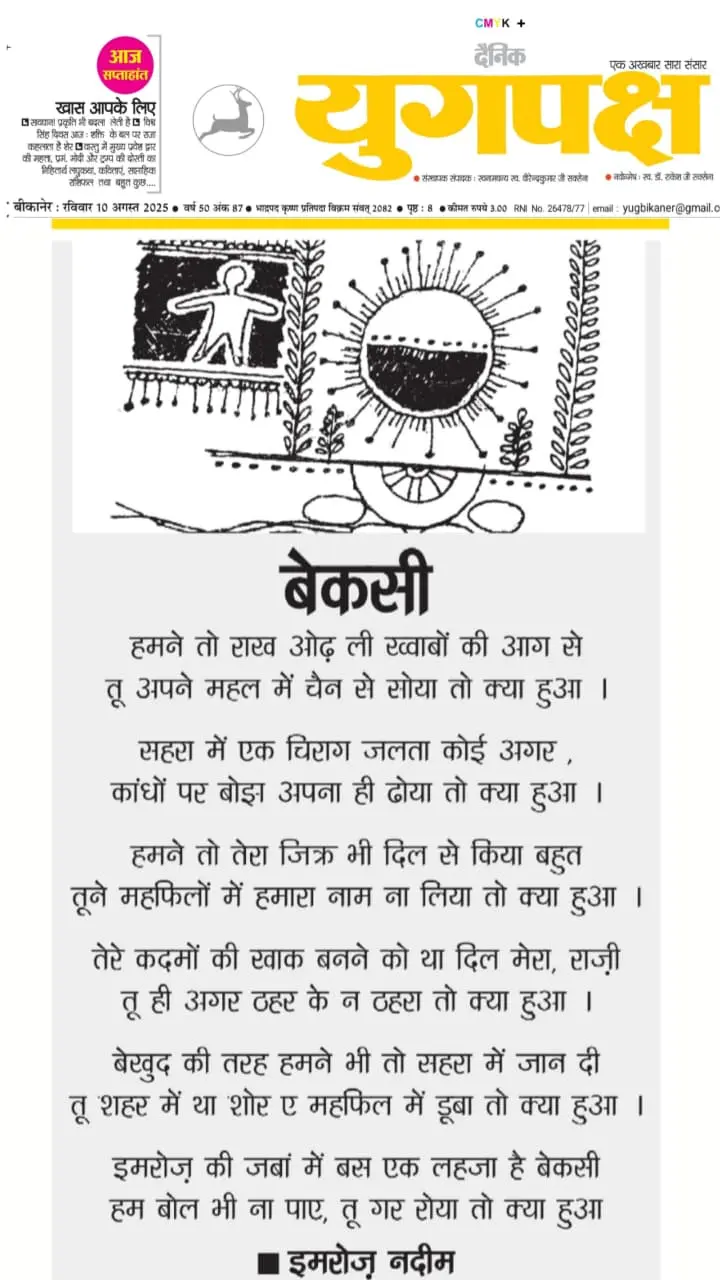 CMYK +
आज
सप्ताहांत
खास आपके लिए
सावधान! प्रकृति भी बदला लेती है विश्व
सिंह दिवस आज : शक्ति के बल पर राजा
कहलाता है शेर वास्तु में मुख्य प्रवेश द्वार
की महत्ता, प्रमं. मोदी और ट्रम्प की दोस्ती का
निहितार्थ लघुकथा, कविताएं, साप्ताहिक
राशिफल तथा बहुत कुछ....
दैनिक
एक अखबार सारा संसार
युगपक्ष
संस्थापक संपादक : स्वनामधन्य स्व. वीरेन्द्रकुमार जी सक्सेना
स्व. डॉ. राकेश जी सक्सेना
बीकानेर : रविवार 10 अगस्त 2025 ● वर्ष 50 अंक 87 ● भाद्रपद कृष्ण प्रतिपदा विक्रम संवत् 2082 ● पृष्ठ : 8 ● कीमत रुपये 3.00 RNI No. 26478/77 | email : yugbikaner@gmail.c
बेकसी
हमने तो राख ओढ़ ली ख्वाबों की आग से
तू अपने महल में चैन से सोया तो क्या हुआ ।
सहरा में एक चिराग जलता कोई अगर ,
कांधों पर बोझ अपना ही ढोया तो क्या हुआ ।
हमने तो तेरा जिक्र भी दिल से किया बहुत
तूने महफिलों में हमारा नाम ना लिया तो क्या हुआ ।
तेरे कदमों की खाक बनने को था दिल मेरा, राज़ी
तू ही अगर ठहर के न ठहरा तो क्या हुआ ।
बेखुद की तरह हमने भी तो सहरा में जान दी
तू शहर में था शोर ए महफिल में डूबा तो क्या हुआ ।
इमरोज़ की जबां में बस एक लहजा है बेकसी
हम बोल भी ना पाए, तू गर रोया तो क्या हुआ
■ इमरोज़ नदीम